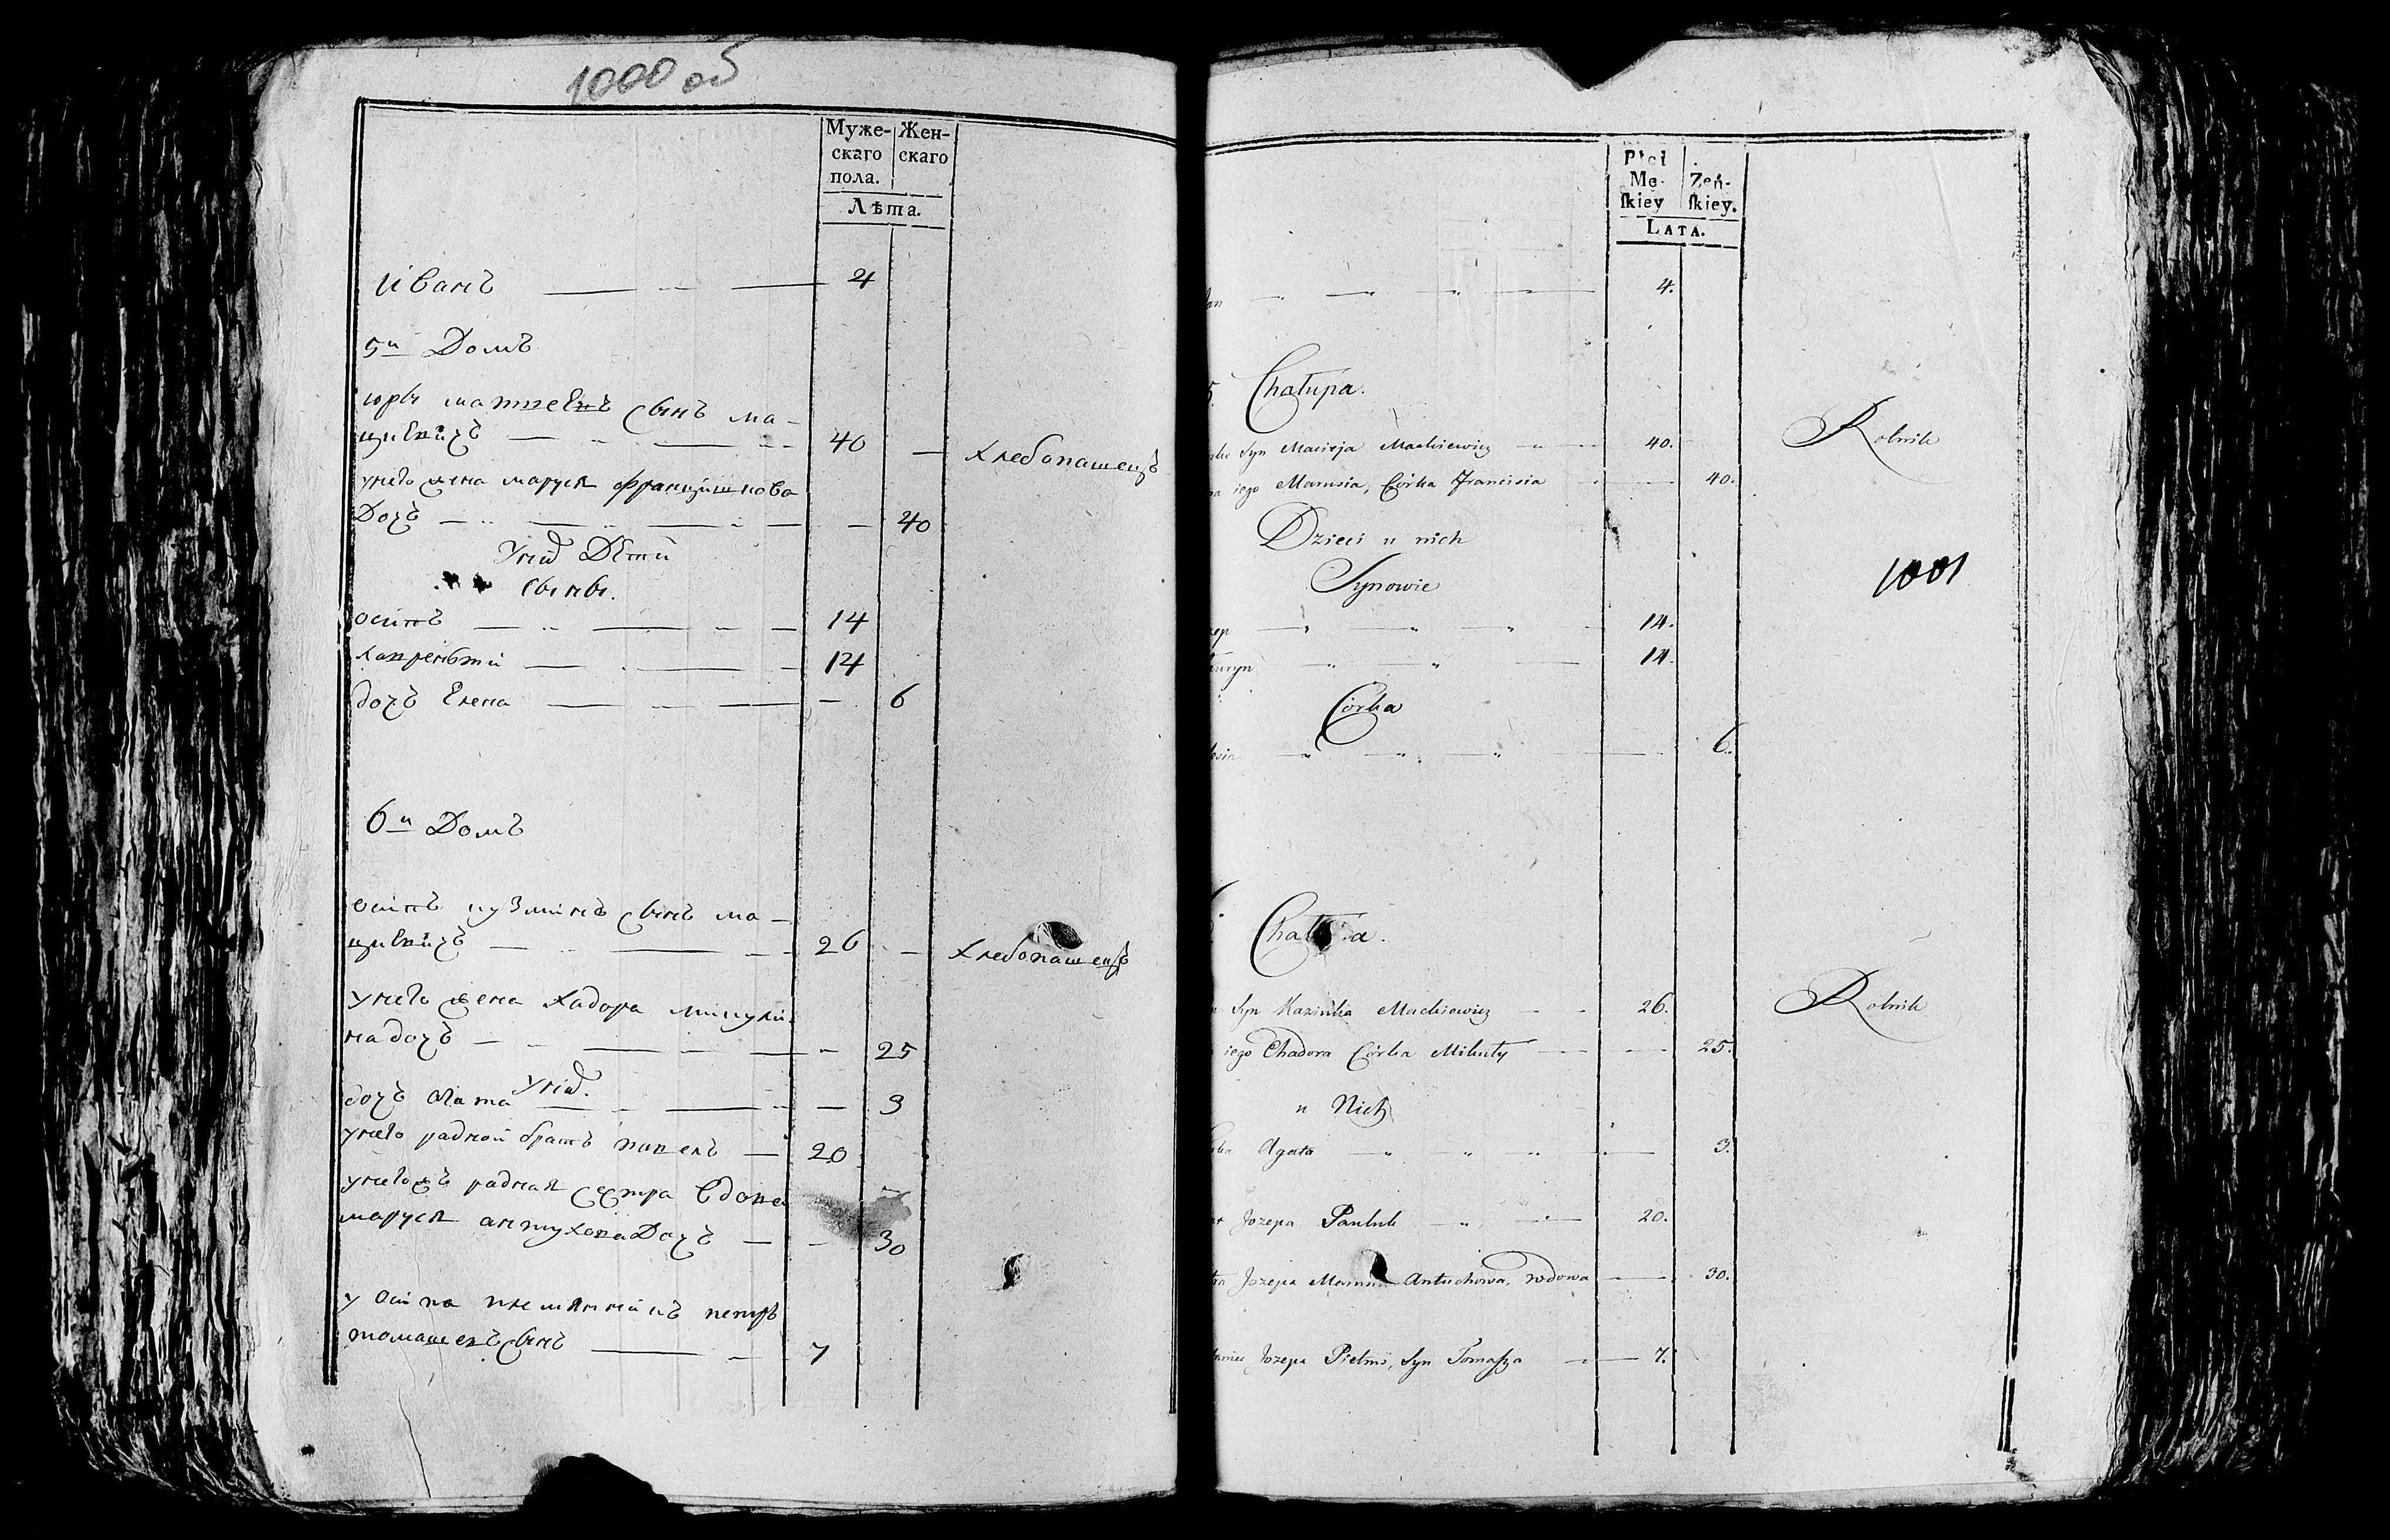 1000 об
Муже- Жен-
скаго скаго
пола.
Лѣта.
Иванъ 4
5й Домъ
юрьи матвеевъ сынъ ма-
цкевичъ 40 — хлебопашецъ
унего жена маруся францишкова
Дочъ — 40
Унихъ Дети
сыны.
осипъ 14
лаврентий 14
дочъ Елена — 6
6й Домъ
осипъ кузминъ сынъ ма-
цкевичъ 26 — хлебопашецъ
унего жена хадора микули-
на дочъ — 25
унихъ.
дочъ агата — 3
унего радной братъ павелъ — 20
унегожъ радная сестра вдова
маруся антухова Дочъ — 30
у осипа племянникъ петръ
томашевъ сынъ 7
Płci
Mę- Żeń-
ſkiey ſkiey.
LATA.
4.
5. Chałupa.
Syn Macieja Mackiewicz 40. Rolnik
iego Marusia, Córka Franciszka 40.
Dzieci u nich
Synowie
14.
14.
Córka
6.
1001
Chałupa.
Syn Kazimira Mackiewicz 26. Rolnik
iego Chadora Córka Mikuły 25.
u Nich
Agata 3.
Jozepa Pauluk 20.
Jozepa Marusia Antuchowa, wdowa 30.
Jozepa Pietruś, Syn Tomaſza 7.